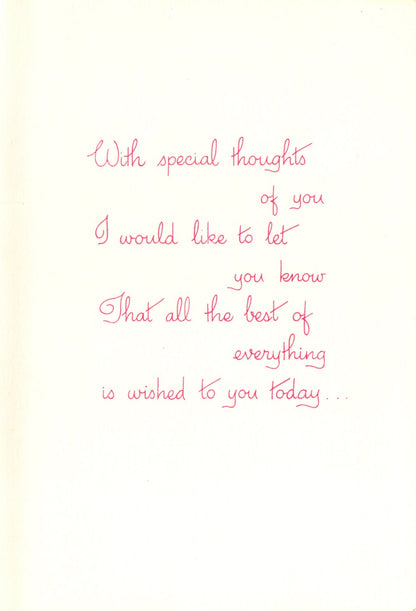 With special thoughts
of you
I would like to let
you know
That all the best of
everything
is wished to you today...